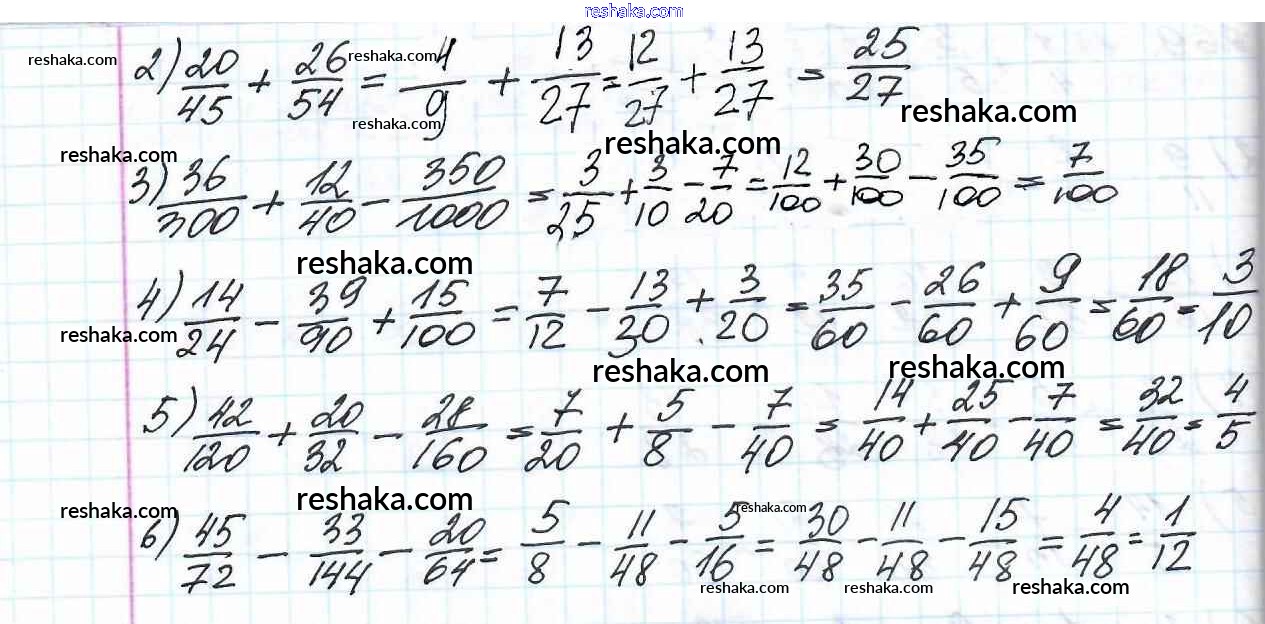 reshaka.com
reshaka.com reshaka.com
2) 20/45 + 26/54 = 4/9 + 13/27 = 12/27 + 13/27 = 25/27
reshaka.com reshaka.com
reshaka.com reshaka.com
3) 36/300 + 12/40 - 350/1000 = 3/25 + 3/10 - 7/20 = 12/100 + 30/100 - 35/100 = 7/100
reshaka.com
4) 14/24 - 39/90 + 15/100 = 7/12 - 13/30 + 3/20 = 35/60 - 26/60 + 9/60 = 18/60 = 3/10
reshaka.com
reshaka.com reshaka.com
5) 42/120 + 20/32 - 28/160 = 7/20 + 5/8 - 7/40 = 14/40 + 25/40 - 7/40 = 32/40 = 4/5
reshaka.com
reshaka.com reshaka.com
6) 45/72 - 33/144 - 20/64 = 5/8 - 11/48 - 5/16 = 30/48 - 11/48 - 15/48 = 4/48 = 1/12
reshaka.com reshaka.com reshaka.com